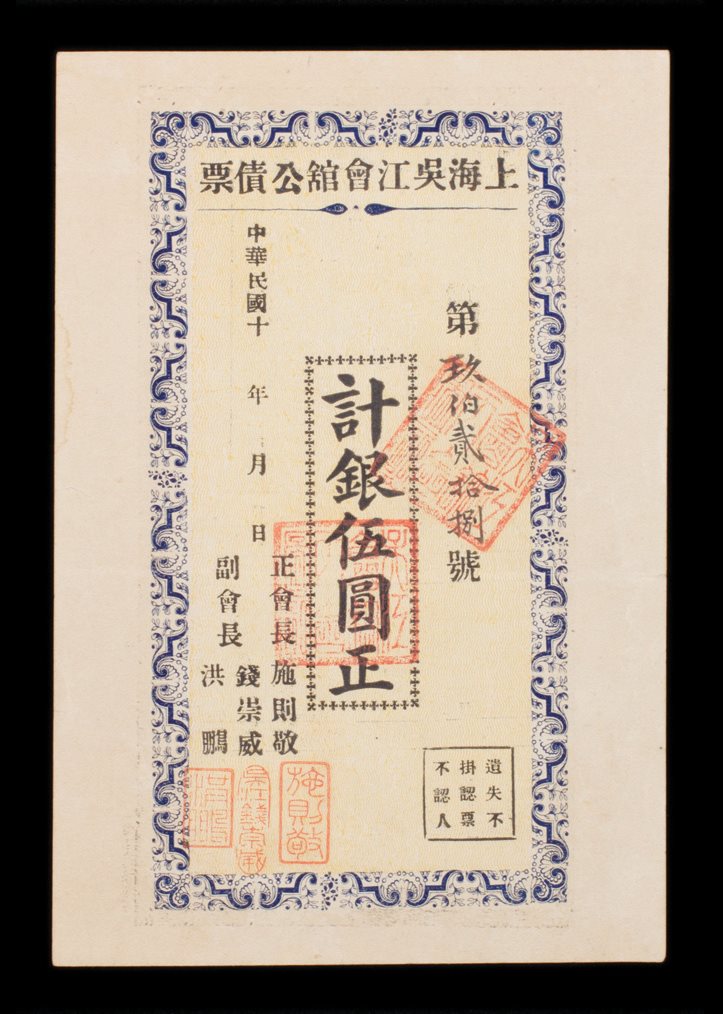 上海吳江會舘公債票
第玖伯貳拾捌號
計銀伍圓正
中華民國十 年 月 日
正會長 施則敬
副會長 錢崇威
洪鵬
遺失不
掛認票
不認人
施則敬
洪鵬